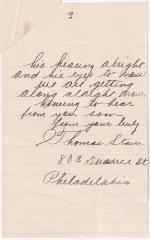 9
his hearing alright
and his eyes to
we are getting
along alright now.
hoping to hear
from you soon
from yours truly
Thomas
803 St
Philadelphia